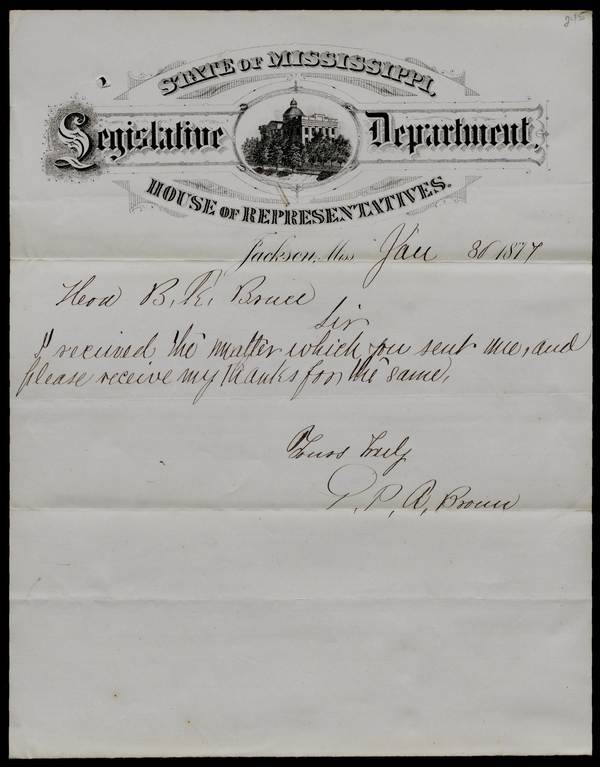 2-15
STATE OF MISSISSIPPI,
Legislative Department,
HOUSE OF REPRESENTATIVES.
Jackson, Miss Jan 30 1877
Hon B. K. Bruce
Sir
I received the matter which you sent me, and
please receive my thanks for the same,
Yours Truly
P, A, Brown